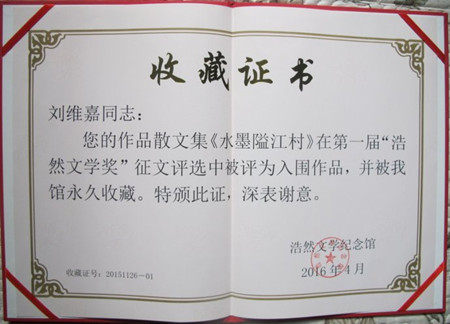 收藏证书
刘维嘉同志：
您的作品散文集《水墨隘江村》在第一届“浩
然文学奖”征文评选中被评为入围作品，并被我
馆永久收藏。特颁此证，深表谢意。
浩然文学纪念馆
2016年1月
收藏证号：20151126-01